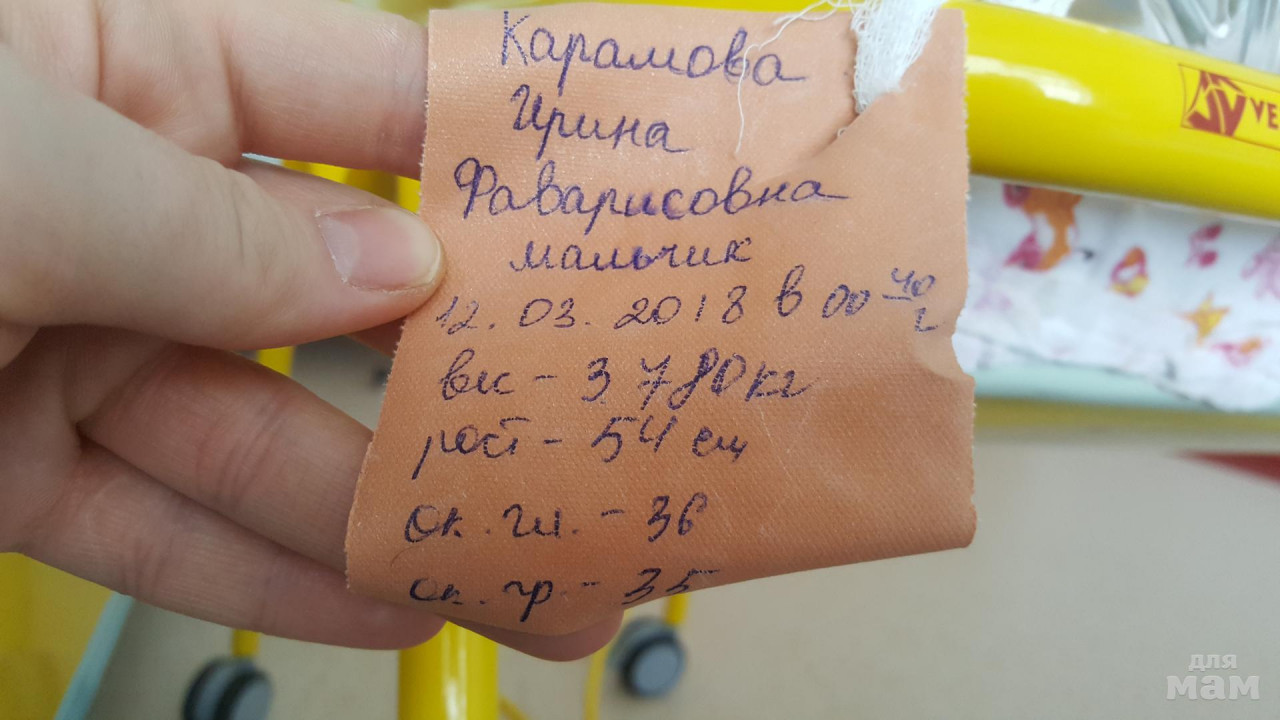 Карамова
Ирина
Фаварисовна
мальчик
12.03.2018 в 00 40
г
вес - 3 780 кг
рост - 54 см
ок. гл. - 36
ок. гр. - 35
VE
для
мам